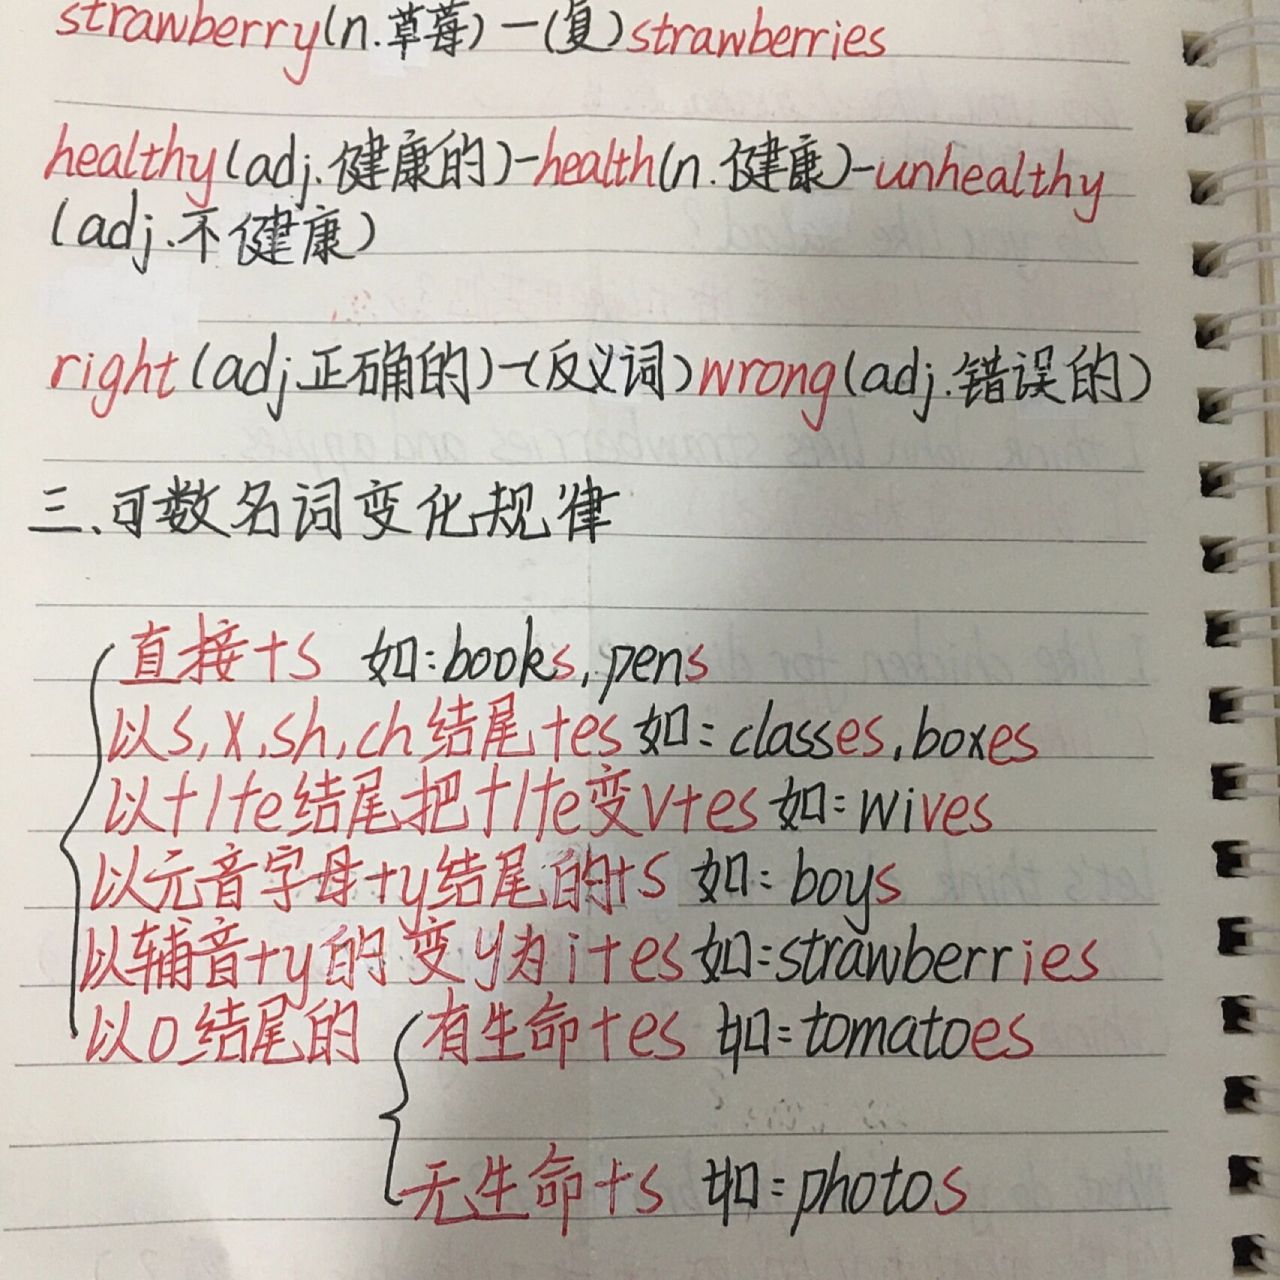 strawberry(n.草莓)—(复)strawberries
healthy(adj.健康的)-health(n.健康)-unhealthy
(adj.不健康)
right(adj.正确的)-(反义词)wrong(adj.错误的)
三、可数名词变化规律
直接+s 如:books,pens
以s,x,sh,ch结尾+es如:classes,boxes
以f/fe结尾把f/fe变v+es如:wives
以元音字母+y结尾的+s 如:boys
以辅音+y的变y为i+es如:strawberries
以o结尾的 有生命+es 如:tomatoes
无生命+s 如:photos